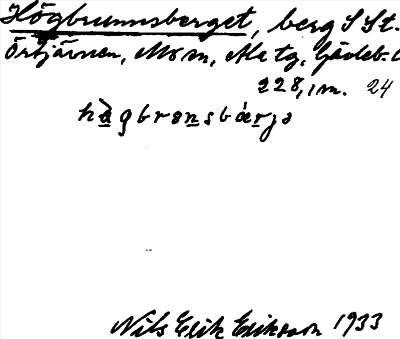 Högbrunnsberget, berg S St.
Örtjärnen, Mo sn, Ala tg, Gävleb. l
228,1 m. 24
hàgbrønsbárjə
Nils Erik Eriksson 1933